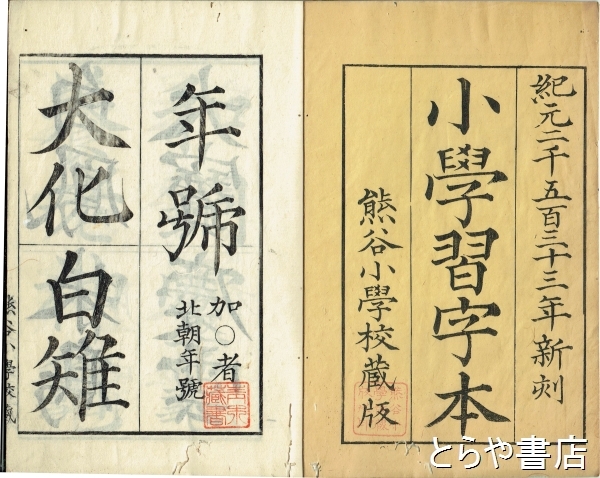 紀元二千五百三十三年新刻
小學習字本
熊谷小學校蔵版
年號
加○者
北朝年號
大化
白雉
熊谷小學校蔵
とらや書店